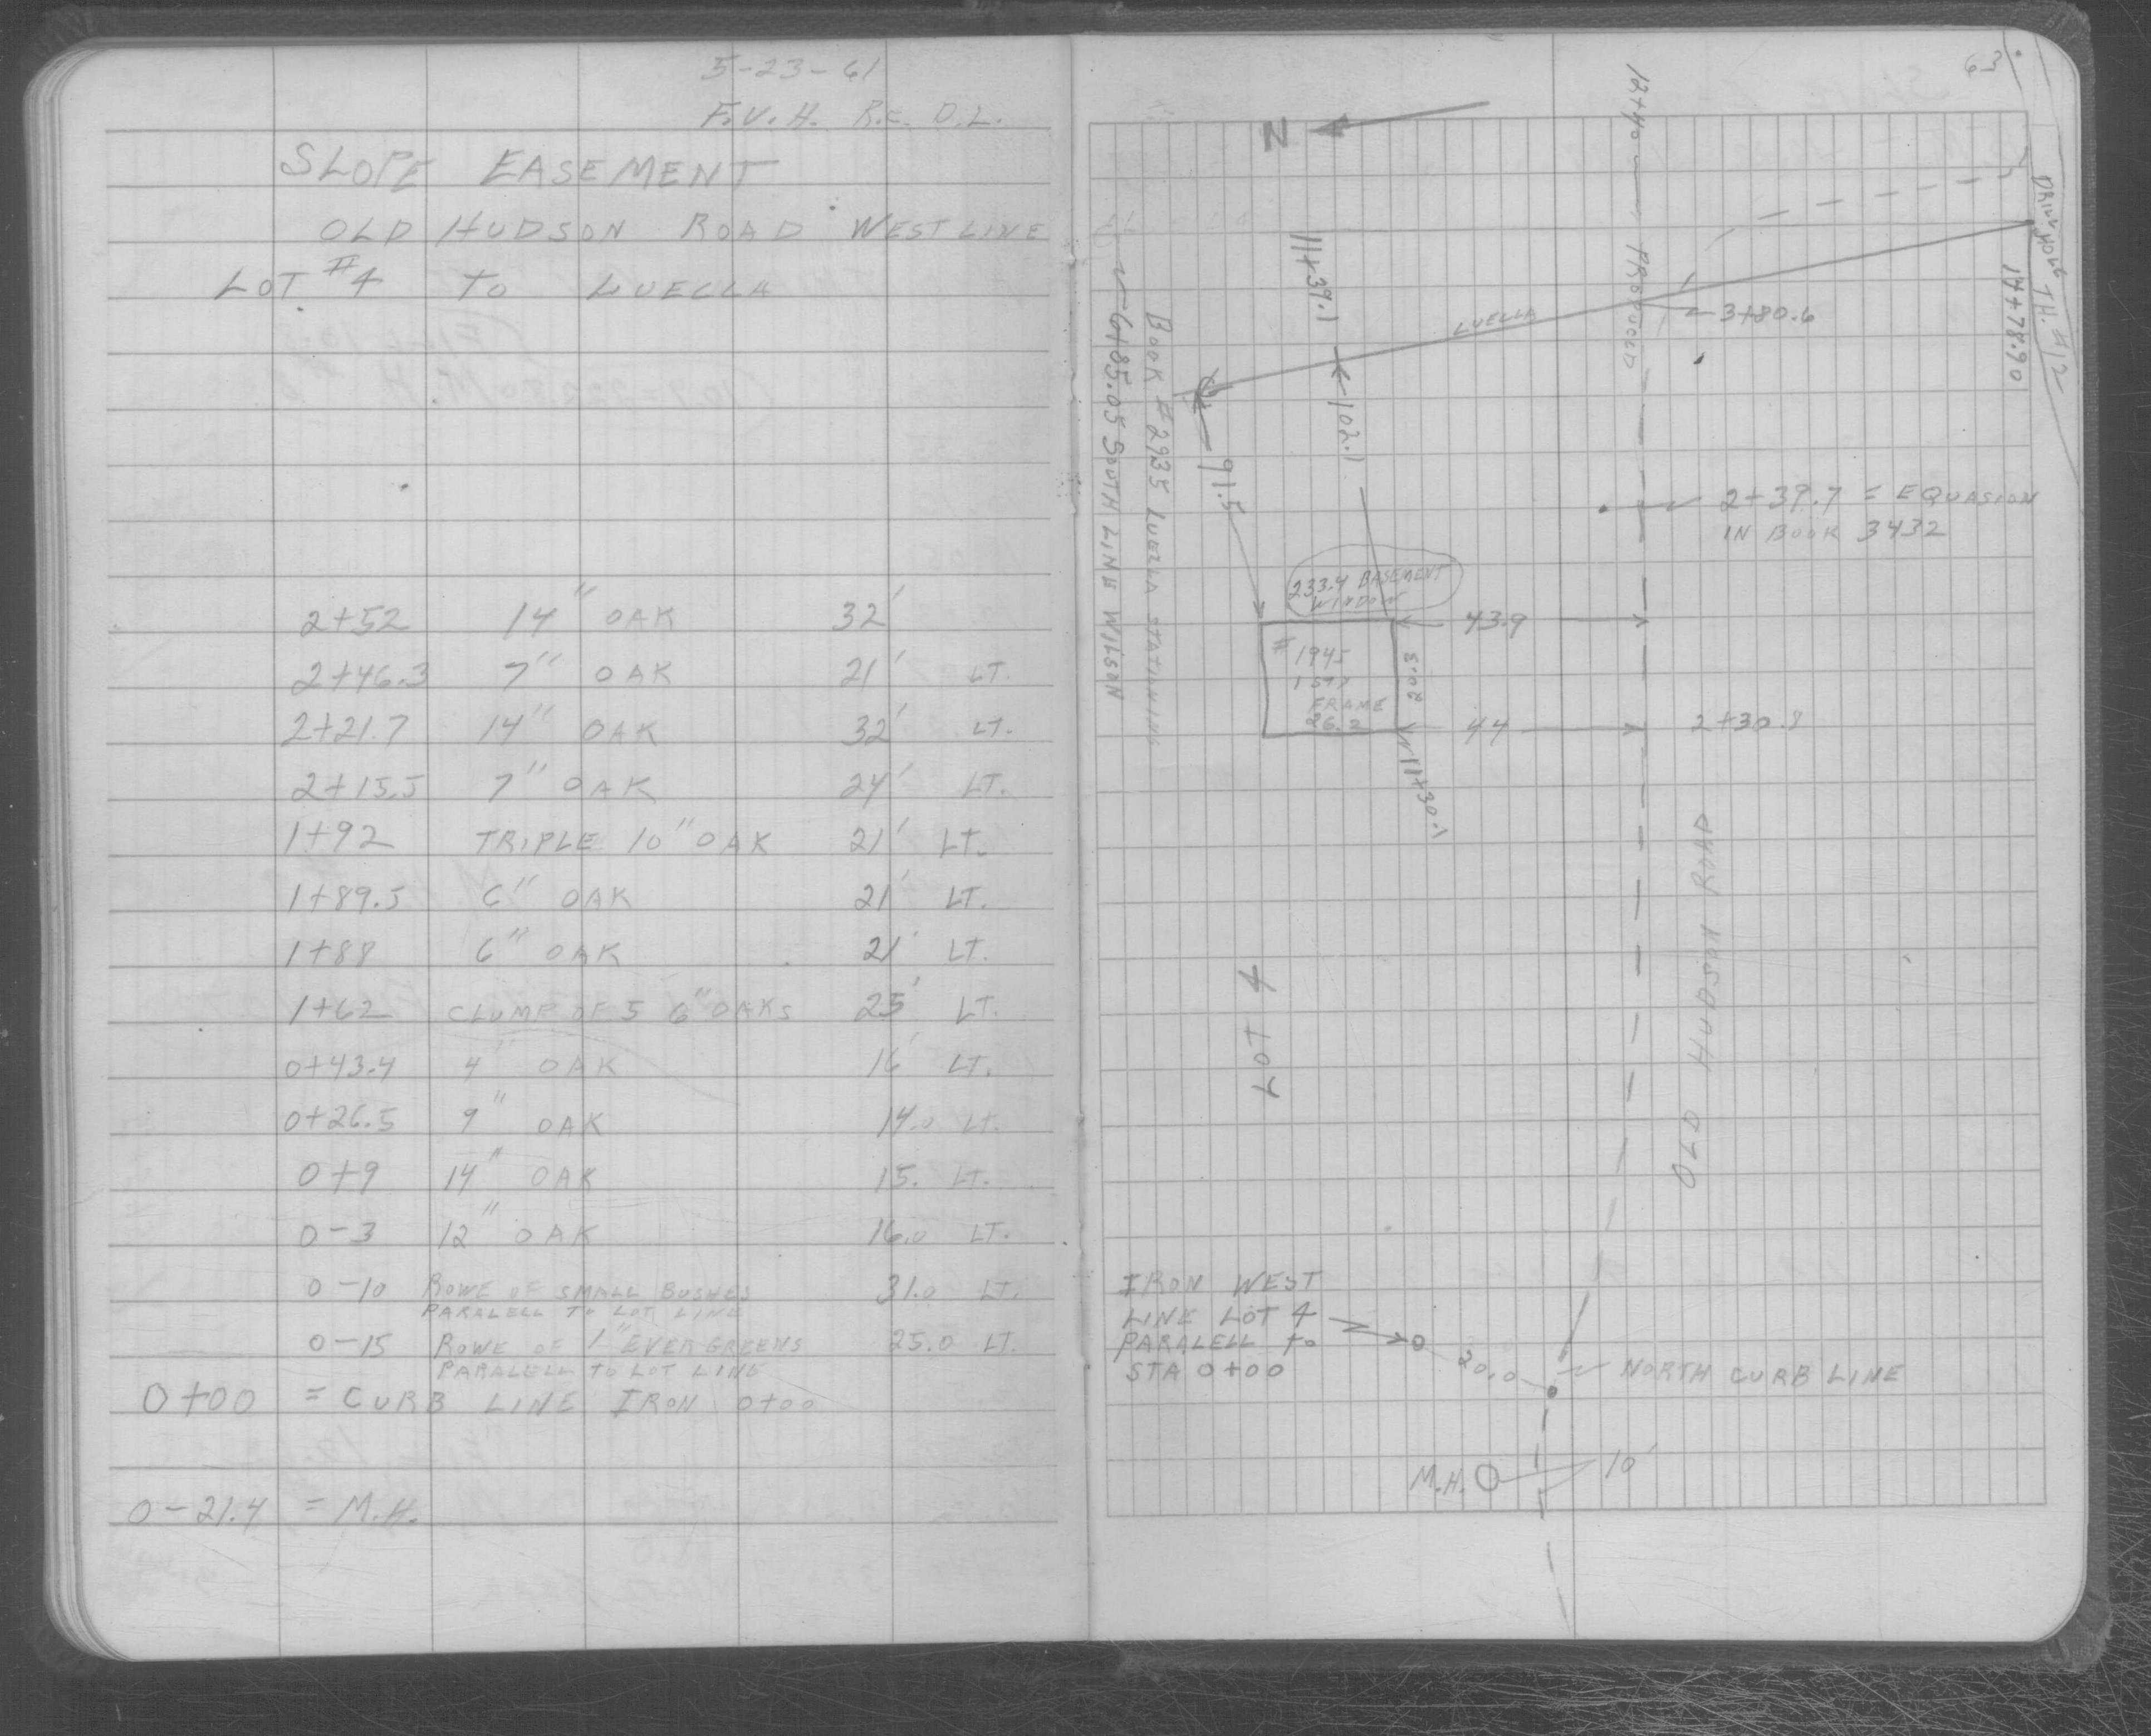 5-23-61
F.V.H. R.E. D.L.
SLOPE EASEMENT
OLD HUDSON ROAD WEST LINE
LOT #4 TO LUELLA
2+52 14" OAK 32'
2+46.3 7" OAK 21' LT.
2+21.7 14" OAK 32' LT.
2+15.5 7" OAK 24' LT.
1+92 TRIPLE 10" OAK 21' LT.
1+89.5 6" OAK 21' LT.
1+88 6" OAK 21' LT.
1+62 CLUMP OF 5 6" OAKS 25' LT.
0+43.4 4" OAK 16' LT.
0+26.5 9" OAK 14.0 LT.
0+9 14" OAK 15. LT.
0-3 12" OAK 16.0 LT.
0-10 ROWE OF SMALL BUSHES 31.0 LT.
PARALELL TO LOT LINE
0-15 ROWE OF 1" EVERGREENS 25.0 LT.
PARALELL TO LOT LINE
0+00 = CURB LINE IRON 0+00
0-21.4 = M.H.
63
N
12+40
PRODUCED
DRILL HOLE T.H. #12
14+78.90
11+39.1
LUELLA
3+80.6
6+85.05 SOUTH LINE WILSON
BOOK #2935 LUELLA STATIONING
102.1
91.5
2+39.7 = EQUASION
IN BOOK 3432
233.4 BASEMENT
WINDOW
43.9
#1945
FRAME
26.2
20.3
44
2+30.8
11+30.1
OLD HUDSON ROAD
LOT 4
IRON WEST
LINE LOT 4
PARALELL TO
STA 0+00
20.0
NORTH CURB LINE
M.H.
10'